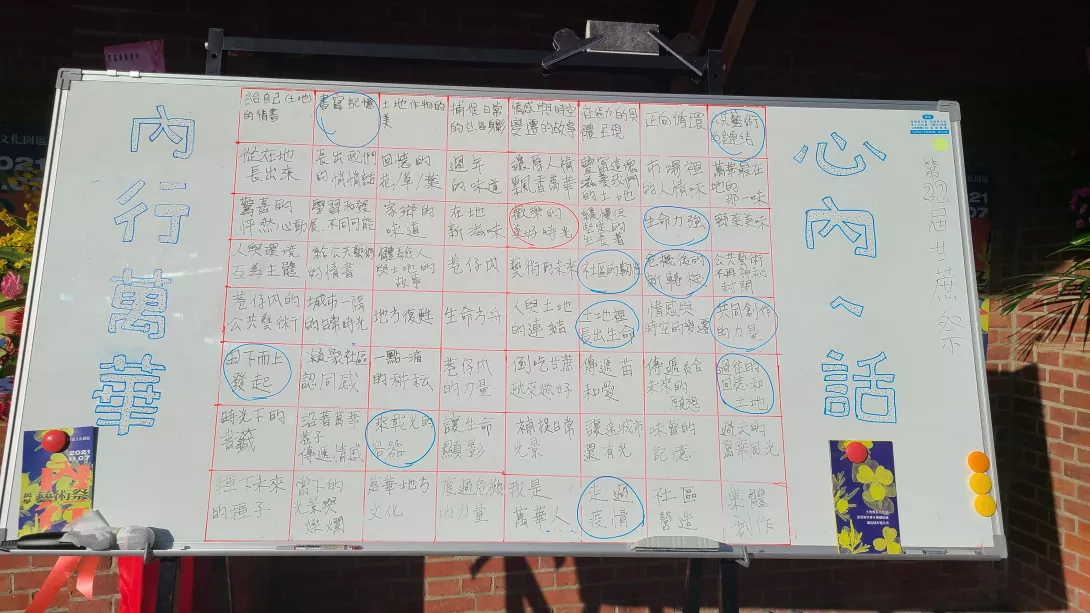 內行萬華
心內ㄟ話
第22屆甘蔗祭
給自己土地
的情書
書寫記憶
土地作物的
美
捕捉日常
的社區身影
情感與時空
變遷的故事
正向循環
公共藝術
的連結
從在地
長出來
長出我們
的情情話
回憶的
花/草/葉
過年
的味道
濃厚人情
飄香萬華
市場裡
的人情味
萬華最在
地的
那一味
驚喜的
怦然心動
學習改變
不同可能
家鄉的
味道
在地
新滋味
歡樂的
美好時光
生命力強
野菜美味
人與環境
互為主體
給公共藝術
的情書
體驗人
與土地的
故事
巷仔內
藝術的未來
社區的韌性
危機後的
新轉機
公共藝術
不再神祕
封閉
巷仔內的
公共藝術
城市一隅
的日常時光
地方復甦
生命力
人與土地
的連結
土地裡
長出生命
情感與
時空的變遷
共同創作
的力量
由下而上
發起
凝聚社區
認同感
一點一滴
的耕耘
巷仔內
的力量
倒吃甘蔗
越來越好
傳遞苗
和愛
傳遞給
未來的
願想
過往的
回憶和
土地
時光下的
書籤
沿著萬華
巷子
傳遞情感
乘載光的
容器
讓生命
顯影
捕捉日常
光景
讓這城市
還有光
味蕾的
記憶
種下未來
的種子
當下的
光景與
燦爛
萬華地方
文化
度過危機
的力量
我是
萬華人
走過
疫情
社區
營造
集體
創作
2021
11.07
藝術祭
文化園區